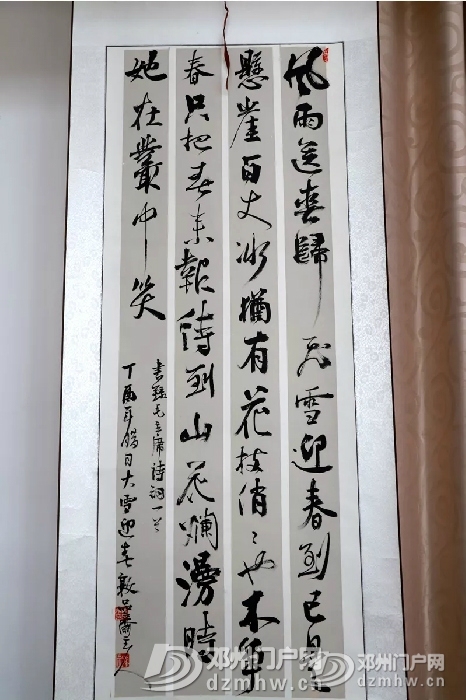 风雨送春歸 飞雪迎春到已是
懸崖百丈冰猶有花枝俏々也不爭
春只把春来報待到山花爛漫時
她在叢中笑
毛主席诗词一首
丁酉年腊月大雪迎春
邓州门户网
邓州门户网